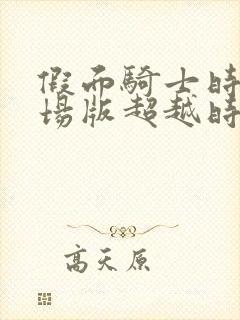 假面騎士時
場版超越時
高天原